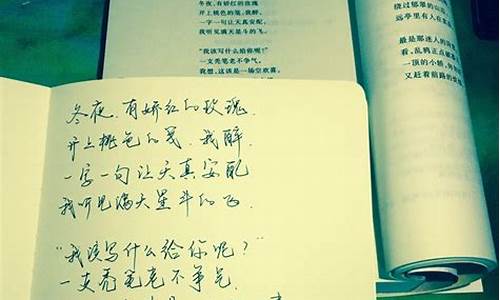 冬夜，有娇红的玫瑰
开上桃色的笺，我醉，
一字一句让天真安配
我听见满天星斗的飞，
“我该写什么给你呢？”
一支秃笔老不争气，
我想，这该是一场空欢喜。
绕过郁翠的山
远亭里有人在
最是那迷人的
看，乱鸦正点
一顶的小轿，
又赶着前路的
冬夜，有娇红的玫瑰，
开上桃色的笺，我醉，
一字一句让天真安配
我听见满天星斗的飞。
“我该写什么给你呢？”
一支秃笔老不争气，